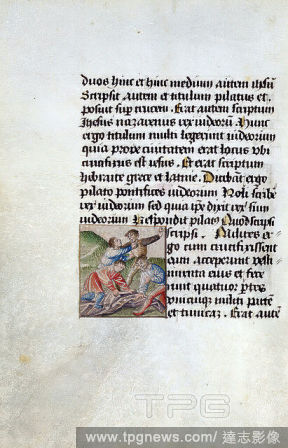 duos hinc et hinc medium autem ihesū
Scripsit autem et titulum pilatus et
posuit sup crucem. Erat autem scriptum
Ihesus nazarenus rex iudeorū. Hunc
ergo titulum multi legerunt iudeorum
quia prope ciuitatem erat locus vbi
crucifixus est iesus. Et erat scriptum
hebraice grece et latine. Dicebāt ergo
pilato pontifices iudeorum Noli scribē
rex iudeorum sed quia ipe dixit rex sum
iudeorum Respondit pilatꝰ Quod scripsi
scripsi. Milites er
go cum crucifixissent
eum acceperunt vesti
menta eius et fece
runt quatuor ptes
vnicuiqꝫ militi partē
et tunicaꝫ. Erat autē
TPG
www.tpgnews.com / 達志影像